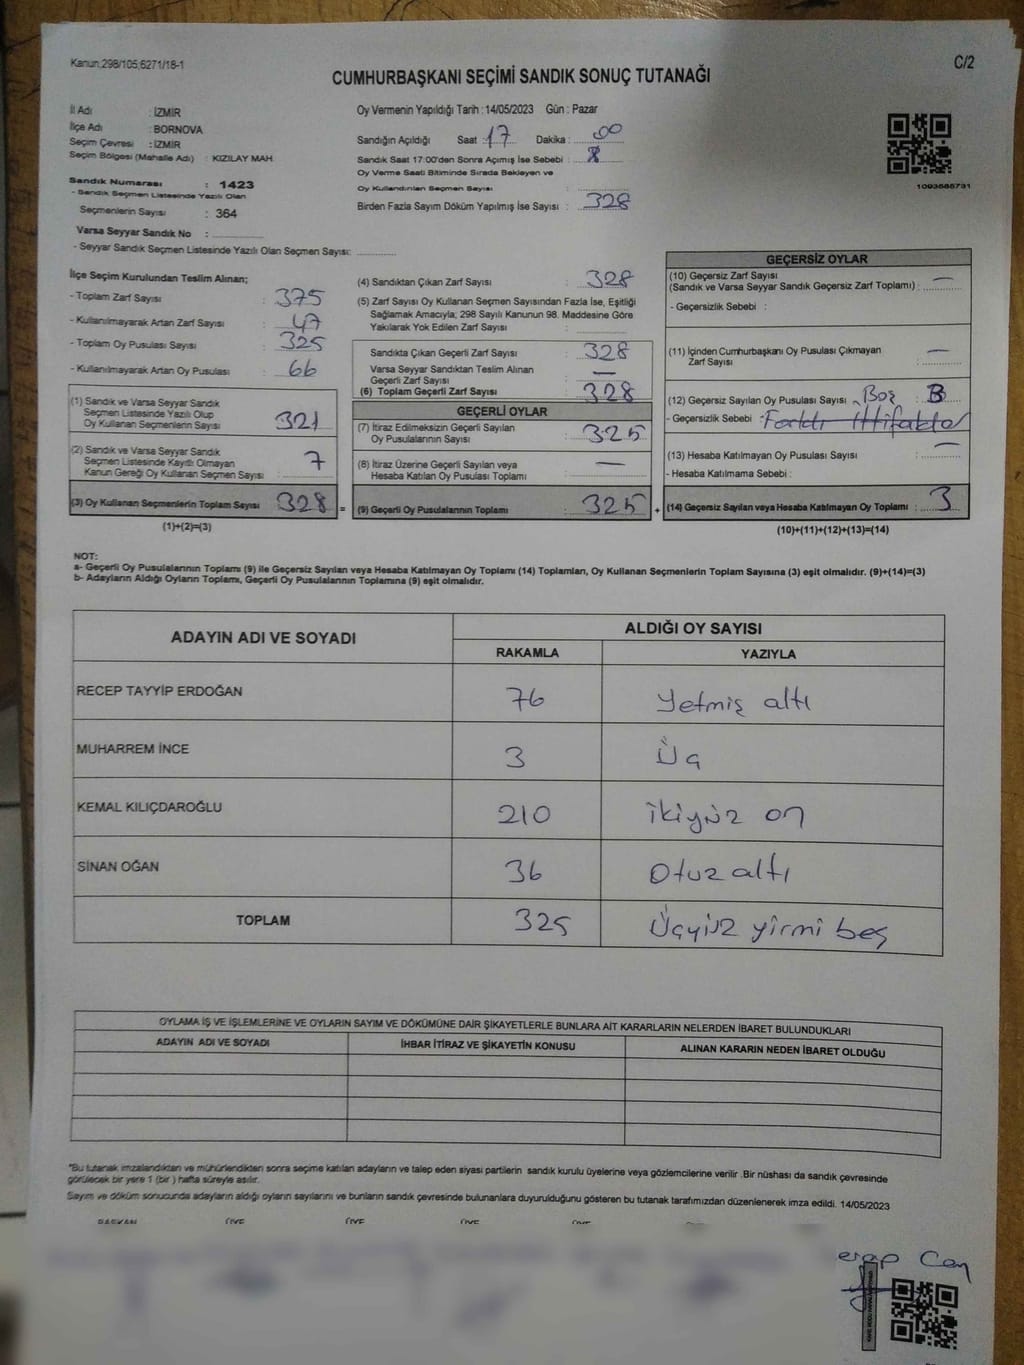 Kanun:298/105;6271/18-1
C/2
CUMHURBAŞKANI SEÇİMİ SANDIK SONUÇ TUTANAĞI
İl Adı : İZMİR
İlçe Adı : BORNOVA
Seçim Çevresi : İZMİR
Seçim Bölgesi (Mahalle Adı) : KIZILAY MAH.
Sandık Numarası : 1423
- Sandık Seçmen Listesinde Yazılı Olan
Seçmenlerin Sayısı : 364
Varsa Seyyar Sandık No :
- Seyyar Sandık Seçmen Listesinde Yazılı Olan Seçmen Sayısı:
Oy Vermenin Yapıldığı Tarih : 14/05/2023 Gün : Pazar
Sandığın Açıldığı Saat : 17 Dakika : 00
Sandık Saat 17:00'den Sonra Açımış İse Sebebi :
Oy Verme Saati Bitiminde Sırada Bekleyen ve
Oy Kullandırılan Seçmen Sayısı :
Birden Fazla Sayım Döküm Yapılmış İse Sayısı : 328
1093585731
İlçe Seçim Kurulundan Teslim Alınan;
- Toplam Zarf Sayısı : 375
- Kullanılmayarak Artan Zarf Sayısı : 47
- Toplam Oy Pusulası Sayısı : 325
- Kullanılmayarak Artan Oy Pusulası : 66
(1) Sandık ve Varsa Seyyar Sandık
Seçmen Listesinde Yazılı Olup
Oy Kullanan Seçmenlerin Sayısı : 321
(2) Sandık ve Varsa Seyyar Sandık
Seçmen Listesinde Kayıtlı Olmayan
Kanun Gereği Oy Kullanan Seçmen Sayısı : 7
(3) Oy Kullanan Seçmenlerin Toplam Sayısı : 328 =
(1)+(2)=(3)
(4) Sandıktan Çıkan Zarf Sayısı : 328
(5) Zarf Sayısı Oy Kullanan Seçmen Sayısından Fazla İse, Eşitliği
Sağlamak Amacıyla; 298 Sayılı Kanunun 98. Maddesine Göre
Yakılarak Yok Edilen Zarf Sayısı :
Sandıkta Çıkan Geçerli Zarf Sayısı : 328
Varsa Seyyar Sandıktan Teslim Alınan
Geçerli Zarf Sayısı : —
(6) Toplam Geçerli Zarf Sayısı : 328
GEÇERLİ OYLAR
(7) İtiraz Edilmeksizin Geçerli Sayılan
Oy Pusulalarının Sayısı : 325
(8) İtiraz Üzerine Geçerli Sayılan veya
Hesaba Katılan Oy Pusulası Toplamı : —
(9) Geçerli Oy Pusulalarının Toplamı : 325 +
GEÇERSİZ OYLAR
(10) Geçersiz Zarf Sayısı
(Sandık ve Varsa Seyyar Sandık Geçersiz Zarf Toplamı) : —
- Geçersizlik Sebebi :
(11) İçinden Cumhurbaşkanı Oy Pusulası Çıkmayan
Zarf Sayısı : —
(12) Geçersiz Sayılan Oy Pusulası Sayısı Boş : 3
- Geçersizlik Sebebi : Farklı İttifaklar
(13) Hesaba Katılmayan Oy Pusulası Sayısı : —
- Hesaba Katılmama Sebebi :
(14) Geçersiz Sayılan veya Hesaba Katılmayan Oy Toplamı : 3
(10)+(11)+(12)+(13)=(14)
NOT:
a- Geçerli Oy Pusulalarının Toplamı (9) ile Geçersiz Sayılan veya Hesaba Katılmayan Oy Toplamı (14) Toplamları, Oy Kullanan Seçmenlerin Toplam Sayısına (3) eşit olmalıdır. (9)+(14)=(3)
b- Adayların Aldığı Oyların Toplamı, Geçerli Oy Pusulalarının Toplamına (9) eşit olmalıdır.
ADAYIN ADI VE SOYADI
ALDIĞI OY SAYISI
RAKAMLA YAZIYLA
RECEP TAYYİP ERDOĞAN 76 Yetmiş altı
MUHARREM İNCE 3 Üç
KEMAL KILIÇDAROĞLU 210 ikiyüz on
SİNAN OĞAN 36 Otuz altı
TOPLAM 325 Üçyüz yirmi beş
OYLAMA İŞ VE İŞLEMLERİNE VE OYLARIN SAYIM VE DÖKÜMÜNE DAİR ŞİKAYETLERLE BUNLARA AİT KARARLARIN NELERDEN İBARET BULUNDUKLARI
ADAYIN ADI VE SOYADI İHBAR İTİRAZ VE ŞİKAYETİN KONUSU ALINAN KARARIN NEDEN İBARET OLDUĞU
*Bu tutanak imzalandıktan ve mühürlendikten sonra seçime katılan adayların ve talep eden siyasi partilerin sandık kurulu üyelerine veya gözlemcilerine verilir .Bir nüshası da sandık çevresinde
görülecek bir yere 1 (bir ) hafta süreyle asılır.
Sayım ve döküm sonucunda adayların aldığı oyların sayılarını ve bunların sandık çevresinde bulunanlara duyurulduğunu gösteren bu tutanak tarafımızdan düzenlenerek imza edildi. 14/05/2023
BAŞKAN ÜYE ÜYE ÜYE ÜYE